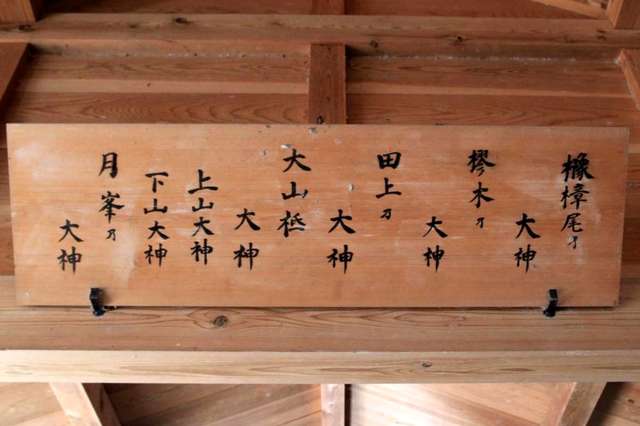 橡樟尾乃
大神
樛木乃
大神
田上乃
大神
大山祗
大神
上山大神
下山大神
月峯乃
大神